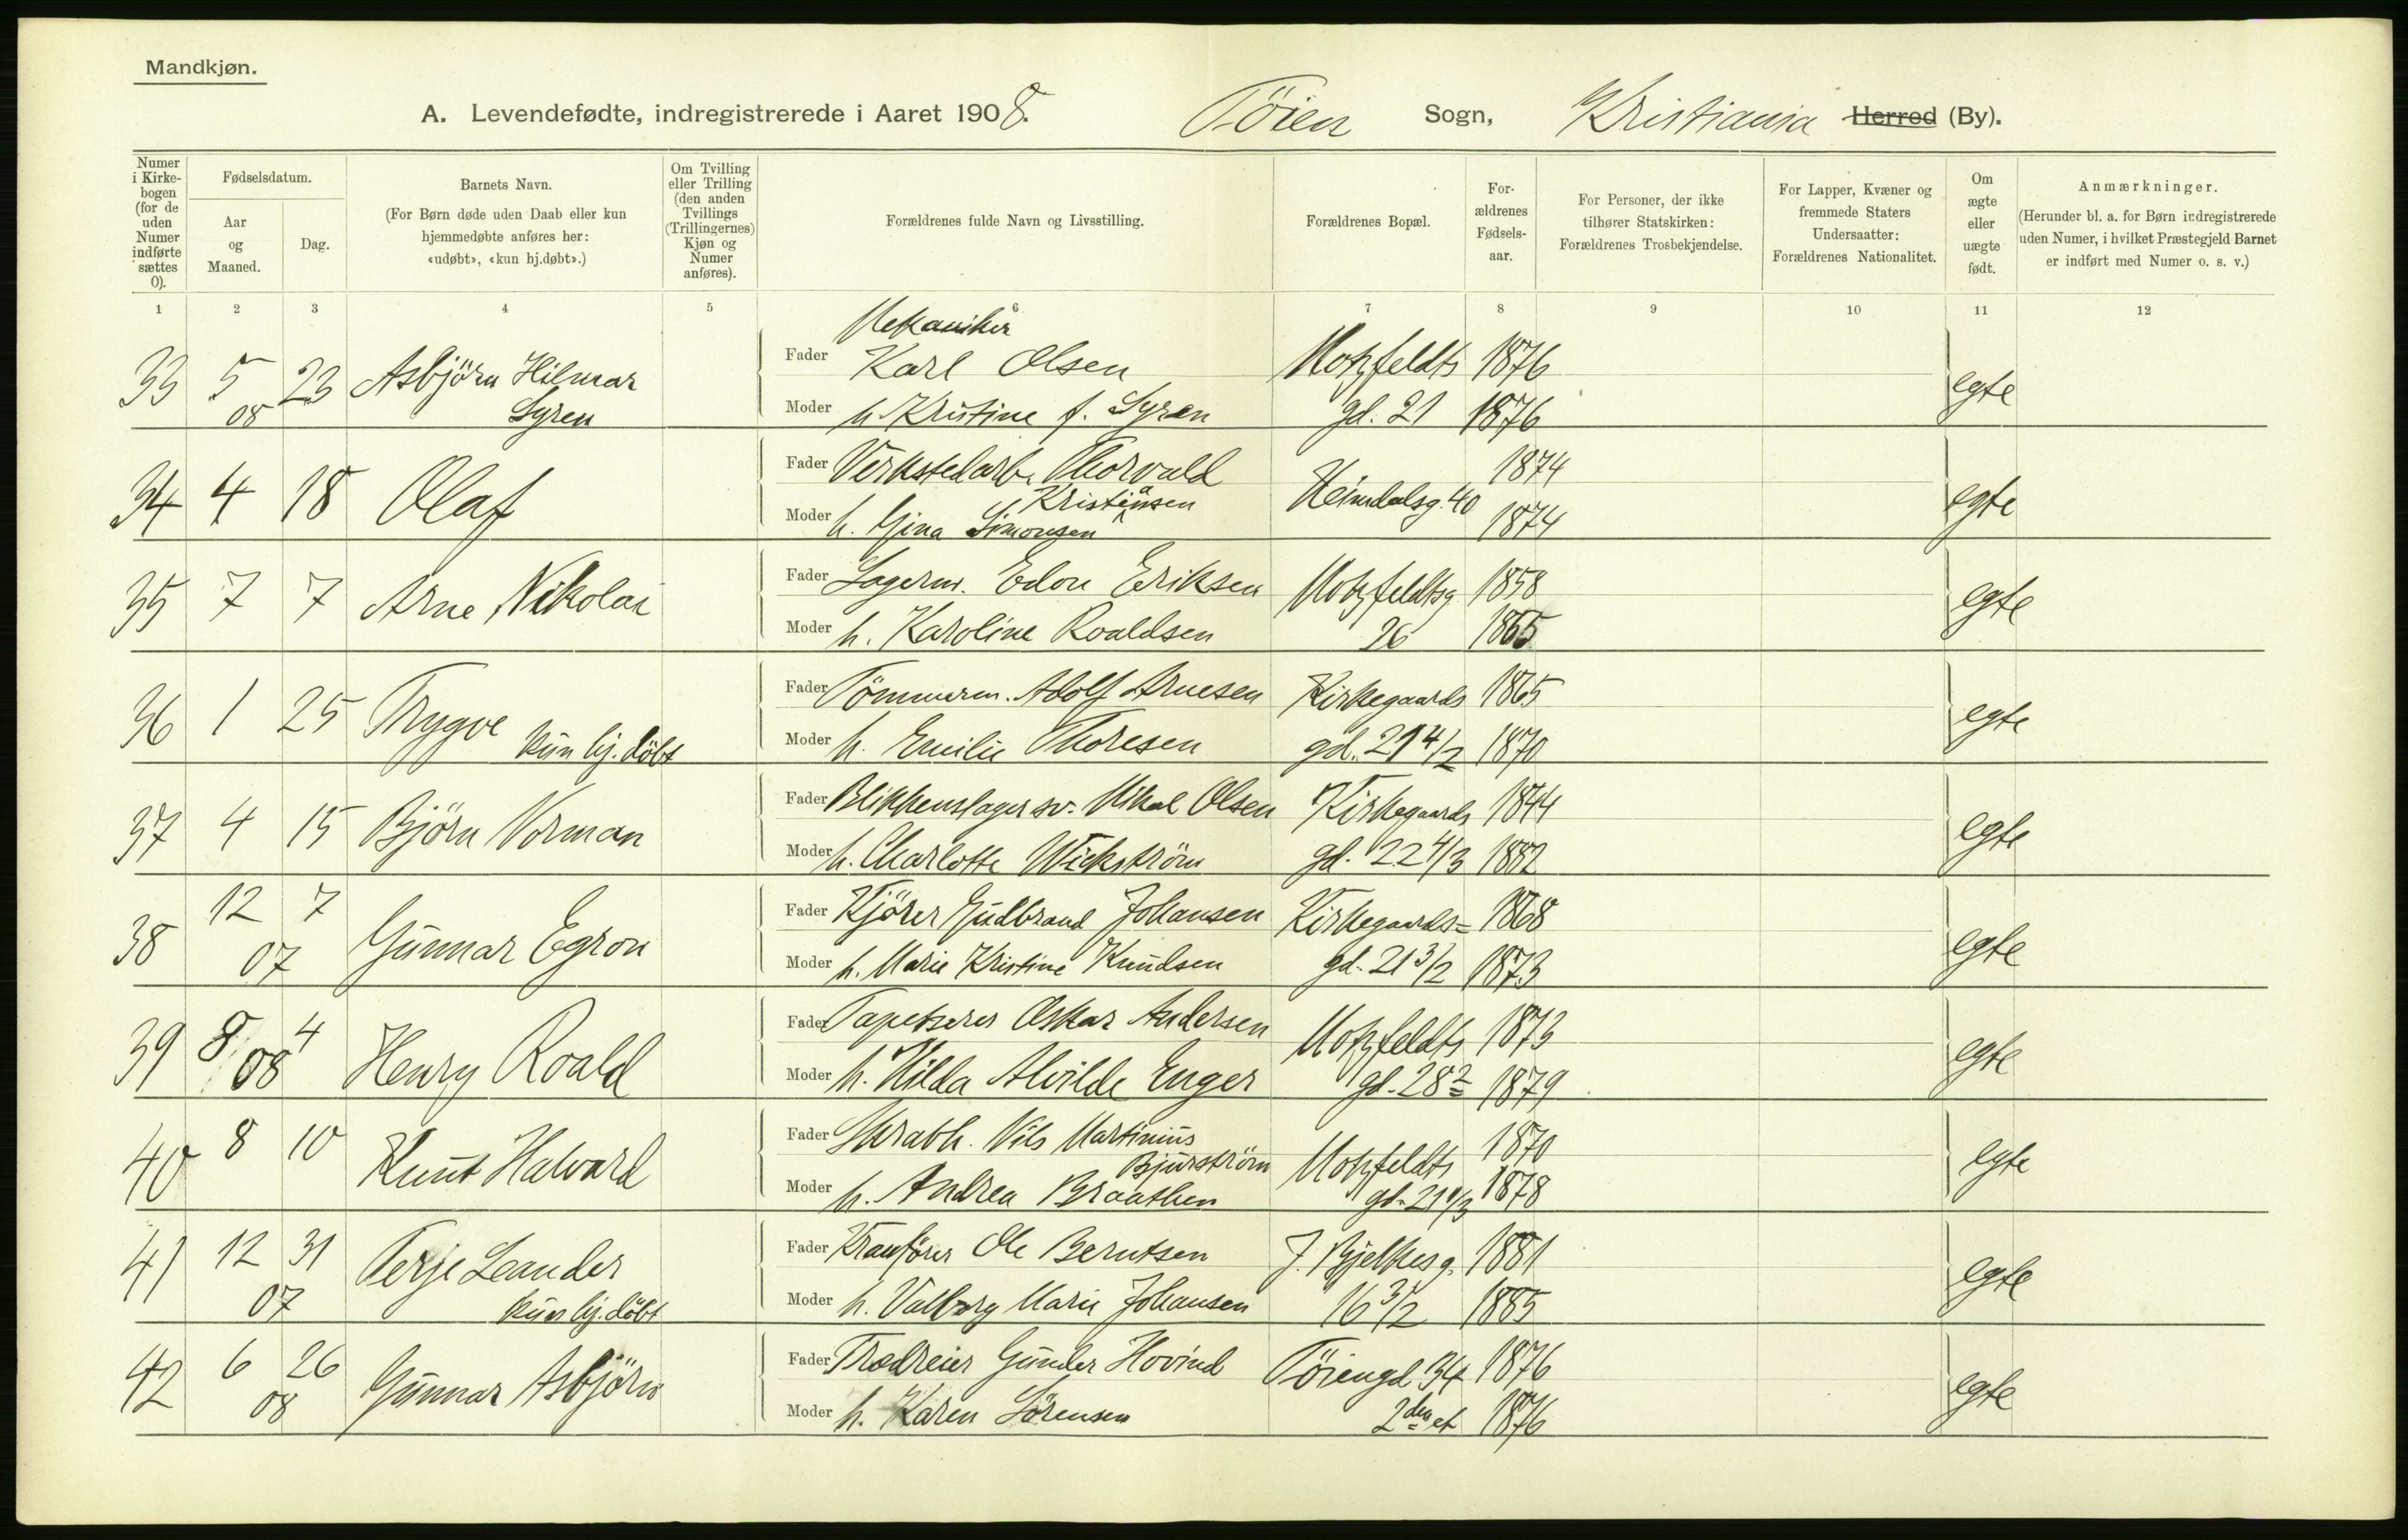 Mandkjøn.
A. Levendefødte, indregistrerede i Aaret 1908. Töien Sogn, Kristiania Herred (By).
Numer i Kirkebogen (for de uden Numer indførte sættes 0).
Fødselsdatum.
Aar og Maaned.
Dag.
Barnets Navn.
(For Børn døde uden Daab eller kun hjemmedøbte anføres her: «udøbt», «kun hj.døbt».)
Om Tvilling eller Trilling (den anden Tvillings (Trillingernes) Kjøn og Numer anføres).
Forældrenes fulde Navn og Livsstilling.
Forældrenes Bopæl.
Forældrenes Fødselsaar.
For Personer, der ikke tilhører Statskirken: Forældrenes Trosbekjendelse.
For Lapper, Kvæner og fremmede Staters Undersaatter: Forældrenes Nationalitet.
Om ægte eller uægte født.
Anmærkninger.
(Herunder bl. a. for Børn indregistrerede uden Numer, i hvilket Præstegjeld Barnet er indført med Numer o. s. v.)
1 2 3 4 5 6 7 8 9 10 11 12
Mekaniker
33 5 23 Asbjörn Hilmar Fader Karl Olsen Motzfeldts 1876 egte
08 Syren Moder h. Kristine f. Syren gd. 21 1876
34 4 18 Olaf Fader Verkstedarb. Thorvald Heimdalsg. 40 1874 egte
Kristiansen
Moder h. Gina Simonsen 1874
35 7 7 Arne Nikolai Fader Lagerm. Edon Eriksen Motzfeldtsg 1858 egte
Moder h. Karoline Roaldsen 26 1865
36 1 25 Trygve Fader Tömmerm. Adolf Arnesen Kirkegaards 1865 egte
kun hj. döbt Moder h. Emilie Thoresen gd. 21 4/2 1870
37 4 15 Björn Norman Fader Blikkenslagersv. Mikal Olsen Kirkegaards 1844 egte
Moder h. Charlotte Wickström gd. 22 4/3 1882
38 12 7 Gunnar Egron Fader Kjörer Gudbrand Johansen Kirkegaards= 1868 egte
07 Moder h. Marie Kristine Knudsen gd. 21 3/2 1873
39 8 4 Henry Roald Fader Tapetserer Oskar Andersen Motzfeldts 1873 egte
08 Moder h. Hilda Alvilde Enger gd. 28 2 1879
40 8 10 Knut Halvard Fader Skrabh. Nils Martinius Motzfeldts 1870 egte
Bjurström
Moder h. Andrea Braathen gd. 21 1878
41 12 31 Terje Leander Fader Kranförer Ole Berntsen J. Bjelkesg. 1881 egte
07 kun hj. döbt Moder h. Valborg Marie Johansen 16 3/2 1885
42 6 26 Gunnar Asbjörn Fader Trædreier Gunder Hovind Töiengd 34 1876 egte
08 Moder h. Karen Sörensen 2den et 1876